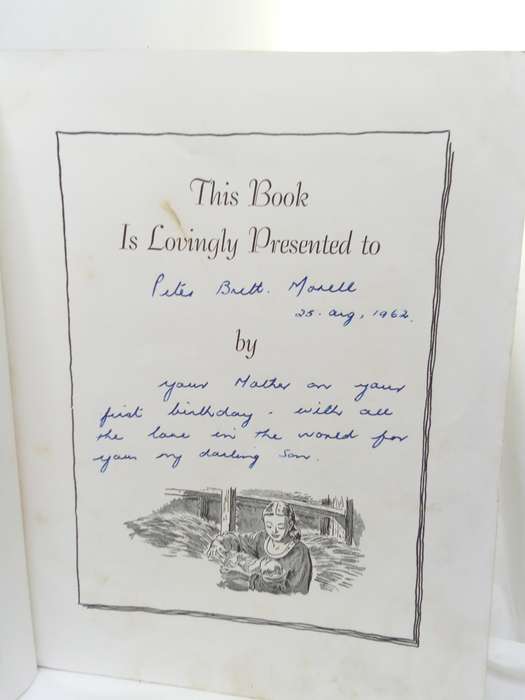 This Book
Is Lovingly Presented to
Peter Brett. Morell
25. Aug, 1962.
by
your Mother on your
first birthday. with all
the love in the world for
you my darling Son.